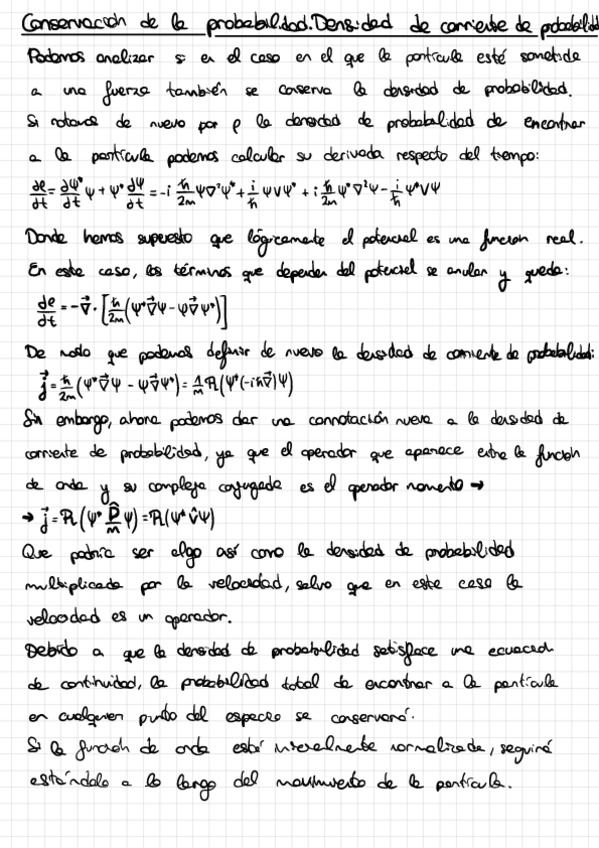 Conservación de la probabilidad. Densidad de corriente de probabilidad
Podemos analizar si en el caso en el que la partícula esté sometida
a una fuerza también se conserva la densidad de probabilidad.
Si notamos de nuevo por ρ la densidad de probabilidad de encontrar
a la partícula podemos calcular su derivada respecto del tiempo:
dρ/dt = ∂ψ*/∂t ψ + ψ* ∂ψ/∂t = -i ħ/2m ψ∇²ψ* + i/ħ ψVψ* + i ħ/2m ψ*∇²ψ - i/ħ ψ*Vψ
Donde hemos supuesto que lógicamente el potencial es una función real.
En este caso, los términos que dependen del potencial se anulan y queda:
dρ/dt = -∇⃗·[ħ/2m (ψ*∇⃗ψ - ψ∇⃗ψ*)]
De modo que podemos definir de nuevo la densidad de corriente de probabilidad:
j⃗ = ħ/2m (ψ*∇⃗ψ - ψ∇⃗ψ*) = 1/m R(ψ*(-iħ∇⃗)ψ)
Sin embargo, ahora podemos dar una connotación nueva a la densidad de
corriente de probabilidad, ya que el operador que aparece entre la función
de onda y su compleja conjugada es el operador momento →
→ j⃗ = R(ψ* p̂/m ψ) = R(ψ* v̂ψ)
Que podría ser algo así como la densidad de probabilidad
multiplicada por la velocidad, salvo que en este caso la
velocidad es un operador.
Debido a que la densidad de probabilidad satisface una ecuación
de continuidad, la probabilidad total de encontrar a la partícula
en cualquier punto del espacio se conservará.
Si la función de onda está inicialmente normalizada, seguirá
estándolo a lo largo del movimiento de la partícula.